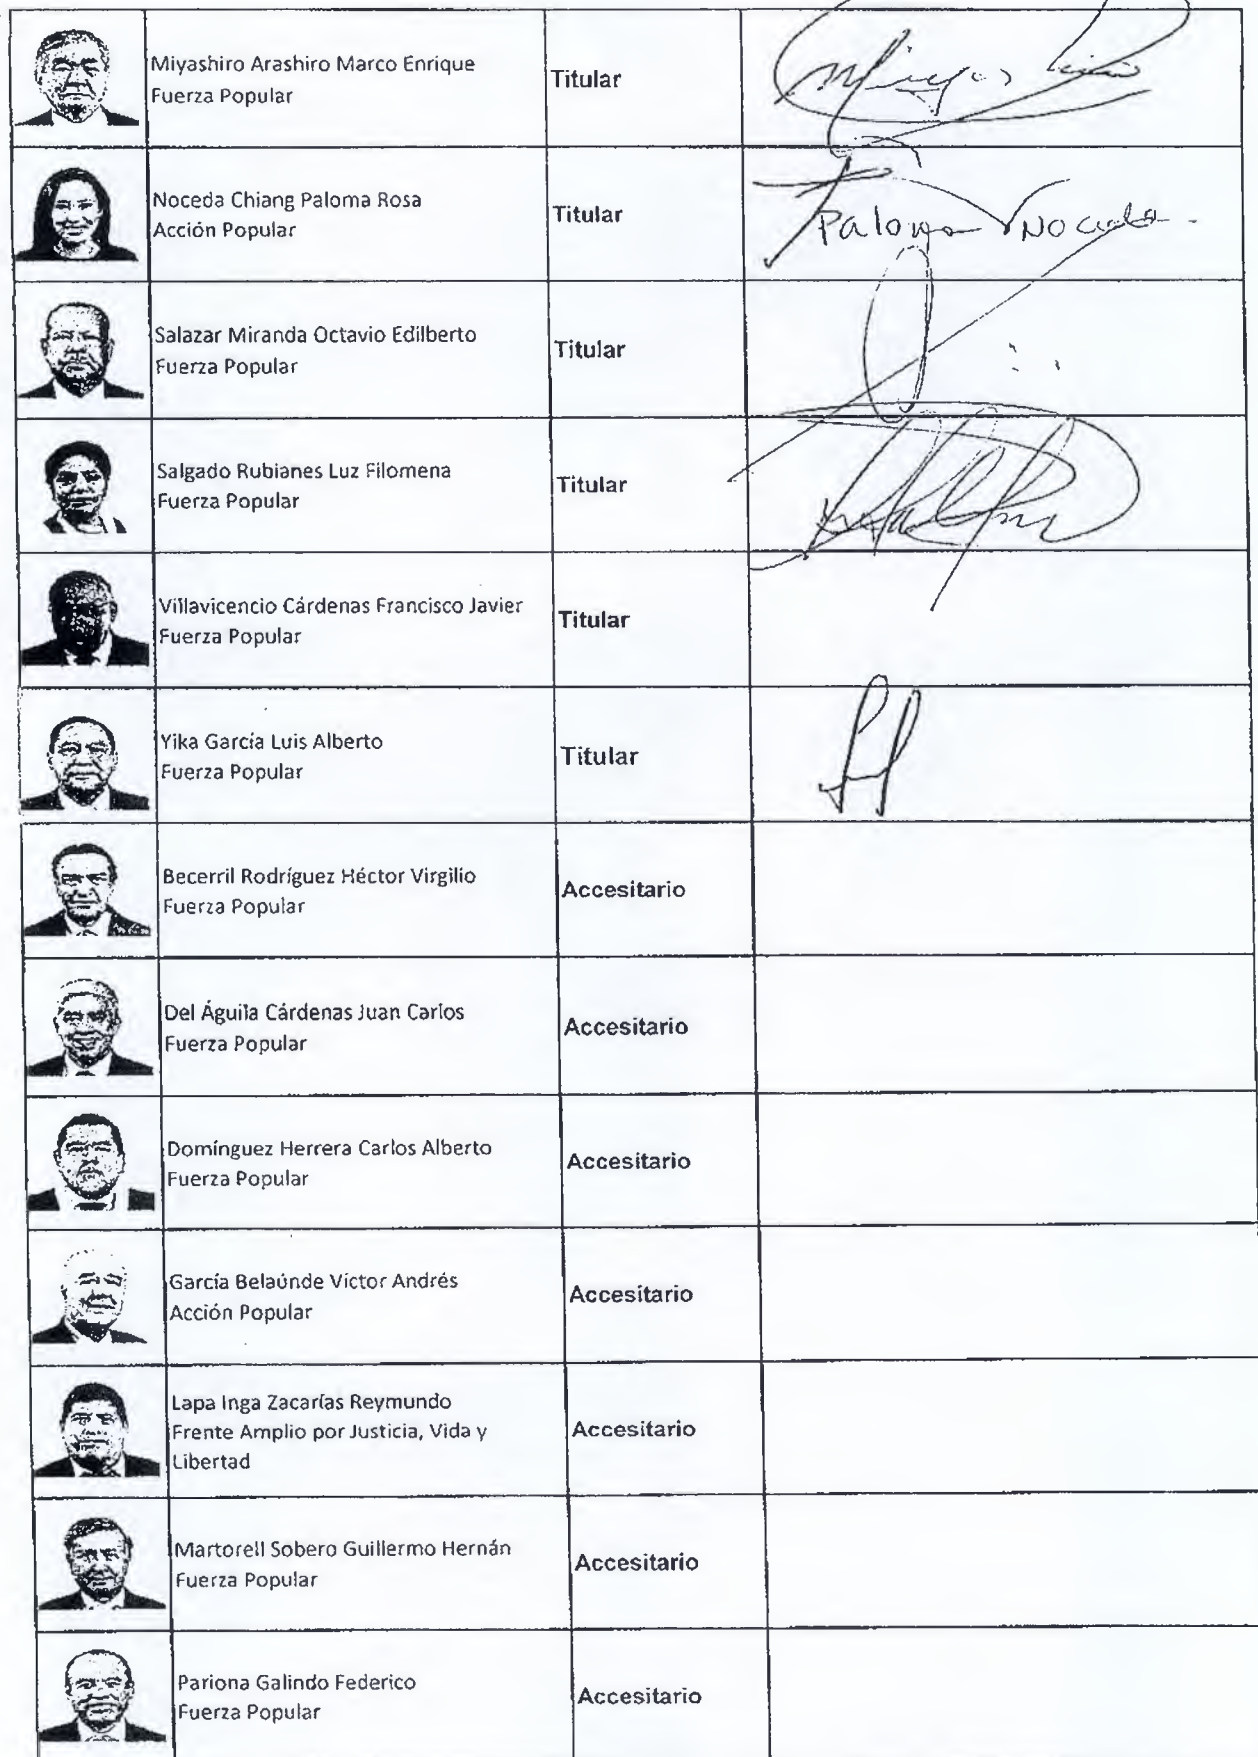 Miyashiro Arashiro Marco Enrique
Fuerza Popular
Titular
Noceda Chiang Paloma Rosa
Acción Popular
Titular
Paloma Noceda
Salazar Miranda Octavio Edilberto
Fuerza Popular
Titular
Salgado Rubianes Luz Filomena
Fuerza Popular
Titular
Villavicencio Cárdenas Francisco Javier
Fuerza Popular
Titular
Yika García Luis Alberto
Fuerza Popular
Titular
Becerril Rodríguez Héctor Virgilio
Fuerza Popular
Accesitario
Del Águila Cárdenas Juan Carlos
Fuerza Popular
Accesitario
Domínguez Herrera Carlos Alberto
Fuerza Popular
Accesitario
García Belaúnde Víctor Andrés
Acción Popular
Accesitario
Lapa Inga Zacarías Reymundo
Frente Amplio por Justicia, Vida y
Libertad
Accesitario
Martorell Sobero Guillermo Hernán
Fuerza Popular
Accesitario
Pariona Galindo Federico
Fuerza Popular
Accesitario